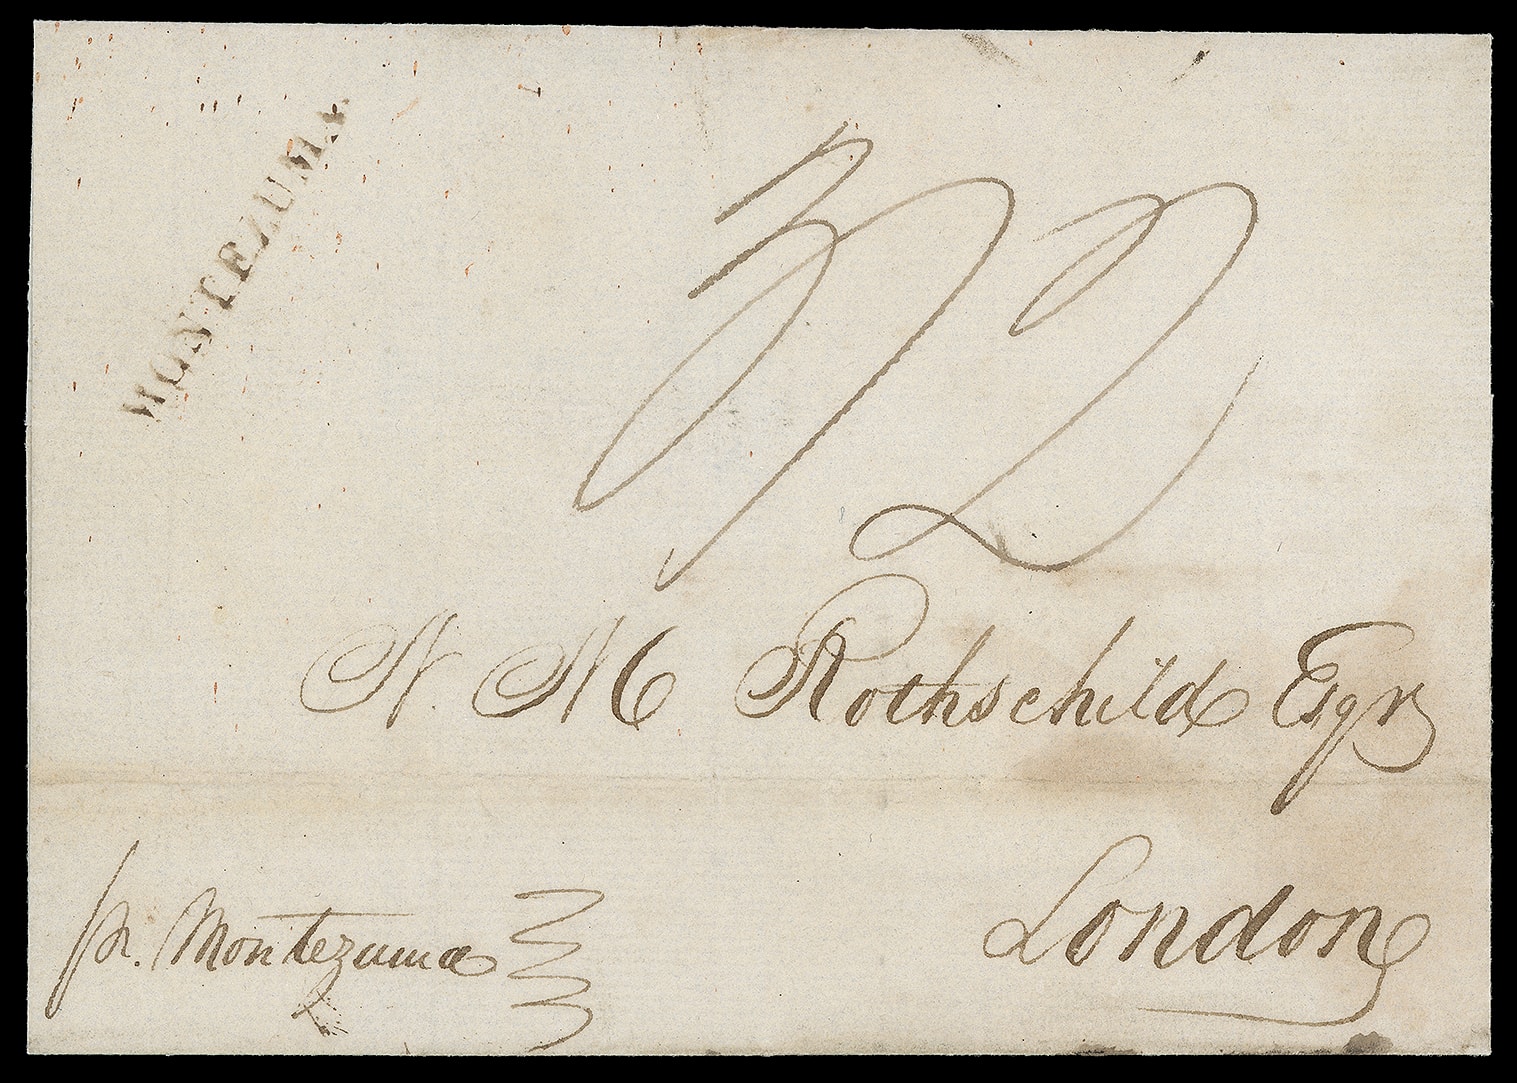 MONTEZUMA
N. M Rothschild Esqr
London
pr. Montezuma